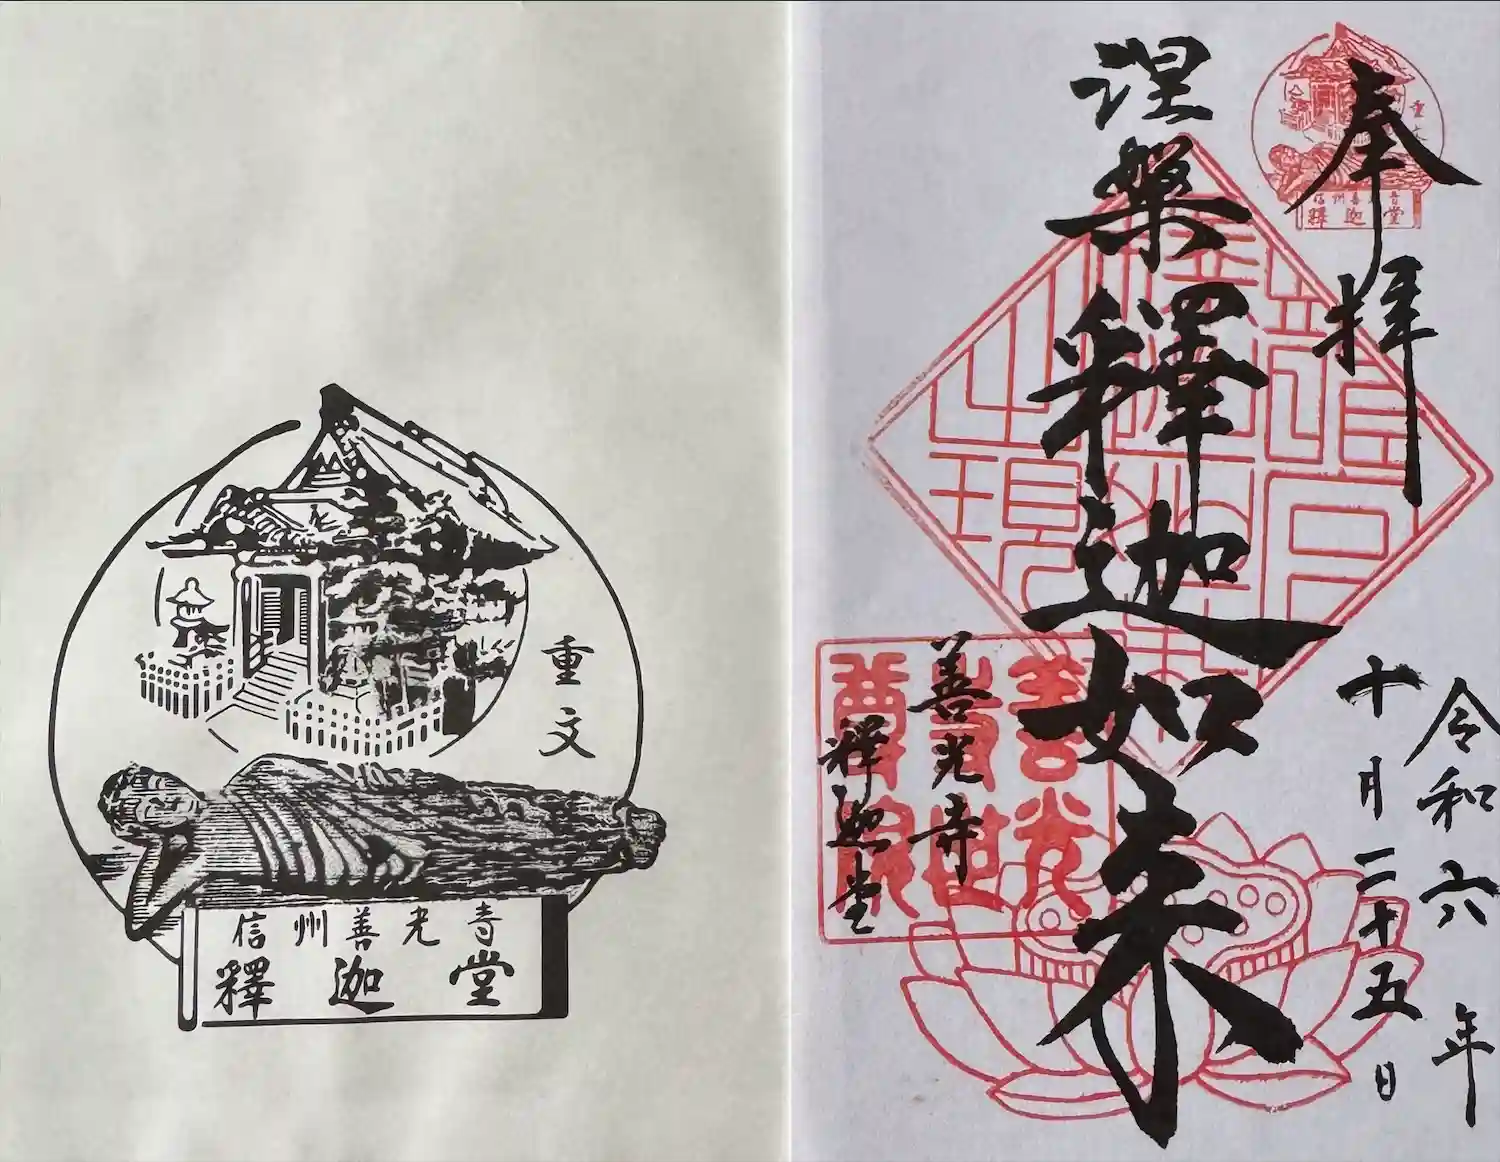 奉拝
令和六年
十月二十五日
涅槃釋迦如来
善光寺
釋迦堂
善光
寺世
尊院
重文
信州善光寺
釋迦堂
重文
信州善光寺
釋迦堂